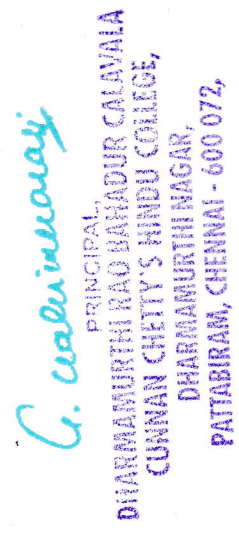 G.
PRINCIPAL,
DHARMAMURTHI RAO BAHADUR CALAVALA
CUNNAN CHETTY'S HINDU COLLEGE,
DHARMAMURTHI NAGAR,
PATTABIRAM, CHENNAI - 600 072,